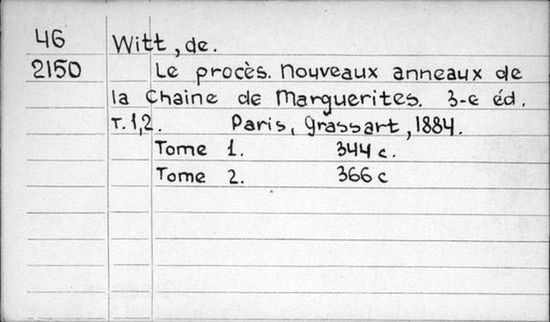 46 Witt, de.
2150 Le procès. Nouveaux anneaux de
la Chaine de Marguerites. 3-e éd.
т. 1,2. Paris, Grassart, 1884.
Tome 1. 344 с.
Tome 2. 366 с